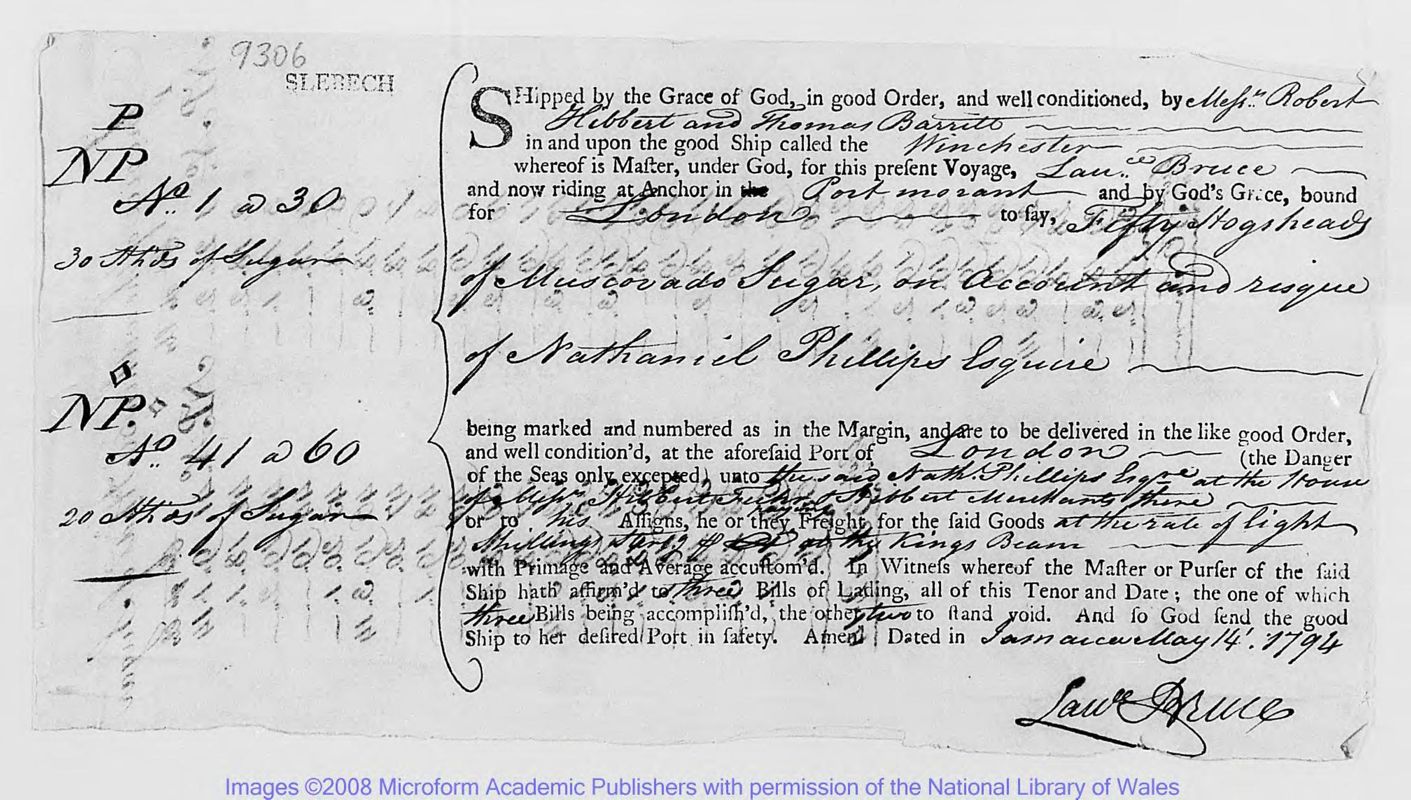 9306
SLEBECH
P
NP
No. 1 a 30
30 Hhds of Sugar
NP.
No. 41 a 60
20 Hhds of Sugar
SHipped by the Grace of God, in good Order, and well conditioned, by Messrs. Robert
Hibbert and Thomas Barritt
in and upon the good Ship called the Winchester
whereof is Maſter, under God, for this preſent Voyage, Lauce. Bruce
and now riding at Anchor in the Port morant and by God's Grace, bound
for London to ſay, Fifty Hogsheads
of Muscovado Sugar, on Account and risque
of Nathaniel Phillips Esquire
being marked and numbered as in the Margin, and are to be delivered in the like good Order,
and well condition'd, at the aforeſaid Port of London (the Danger
of the Seas only excepted) unto the said Nath. Phillips Esqre at the House
of Messrs Hibbert Hibbert Merchants there
or to his Aſſigns, he or they Freight for the ſaid Goods at the rate of Eight
Shillings Sterlg at the Kings Beam
with Primage and Average accuſtom'd. In Witneſs whereof the Maſter or Purſer of the ſaid
Ship hath affirm'd to three Bills of Lading, all of this Tenor and Date; the one of which
three Bills being accompliſh'd, the other two to ſtand void. And ſo God ſend the good
Ship to her deſired Port in ſafety. Amen Dated in Jamaica May 14. 1794
Lauce Bruce
Images ©2008 Microform Academic Publishers with permission of the National Library of Wales